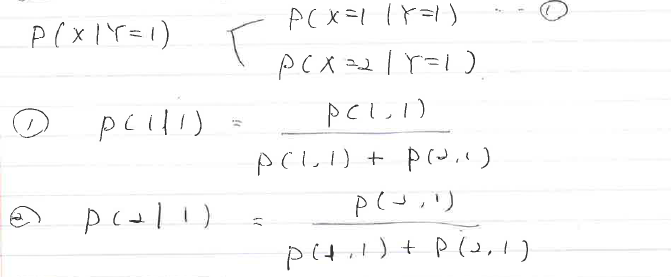 P(X|Y=1) { P(X=1 |Y=1) -- ①
P(X=2 | Y=1)
① P(1|1) = P(1,1) / P(1,1) + P(2,1)
② P(2|1) = P(2,1) / P(1,1) + P(2,1)